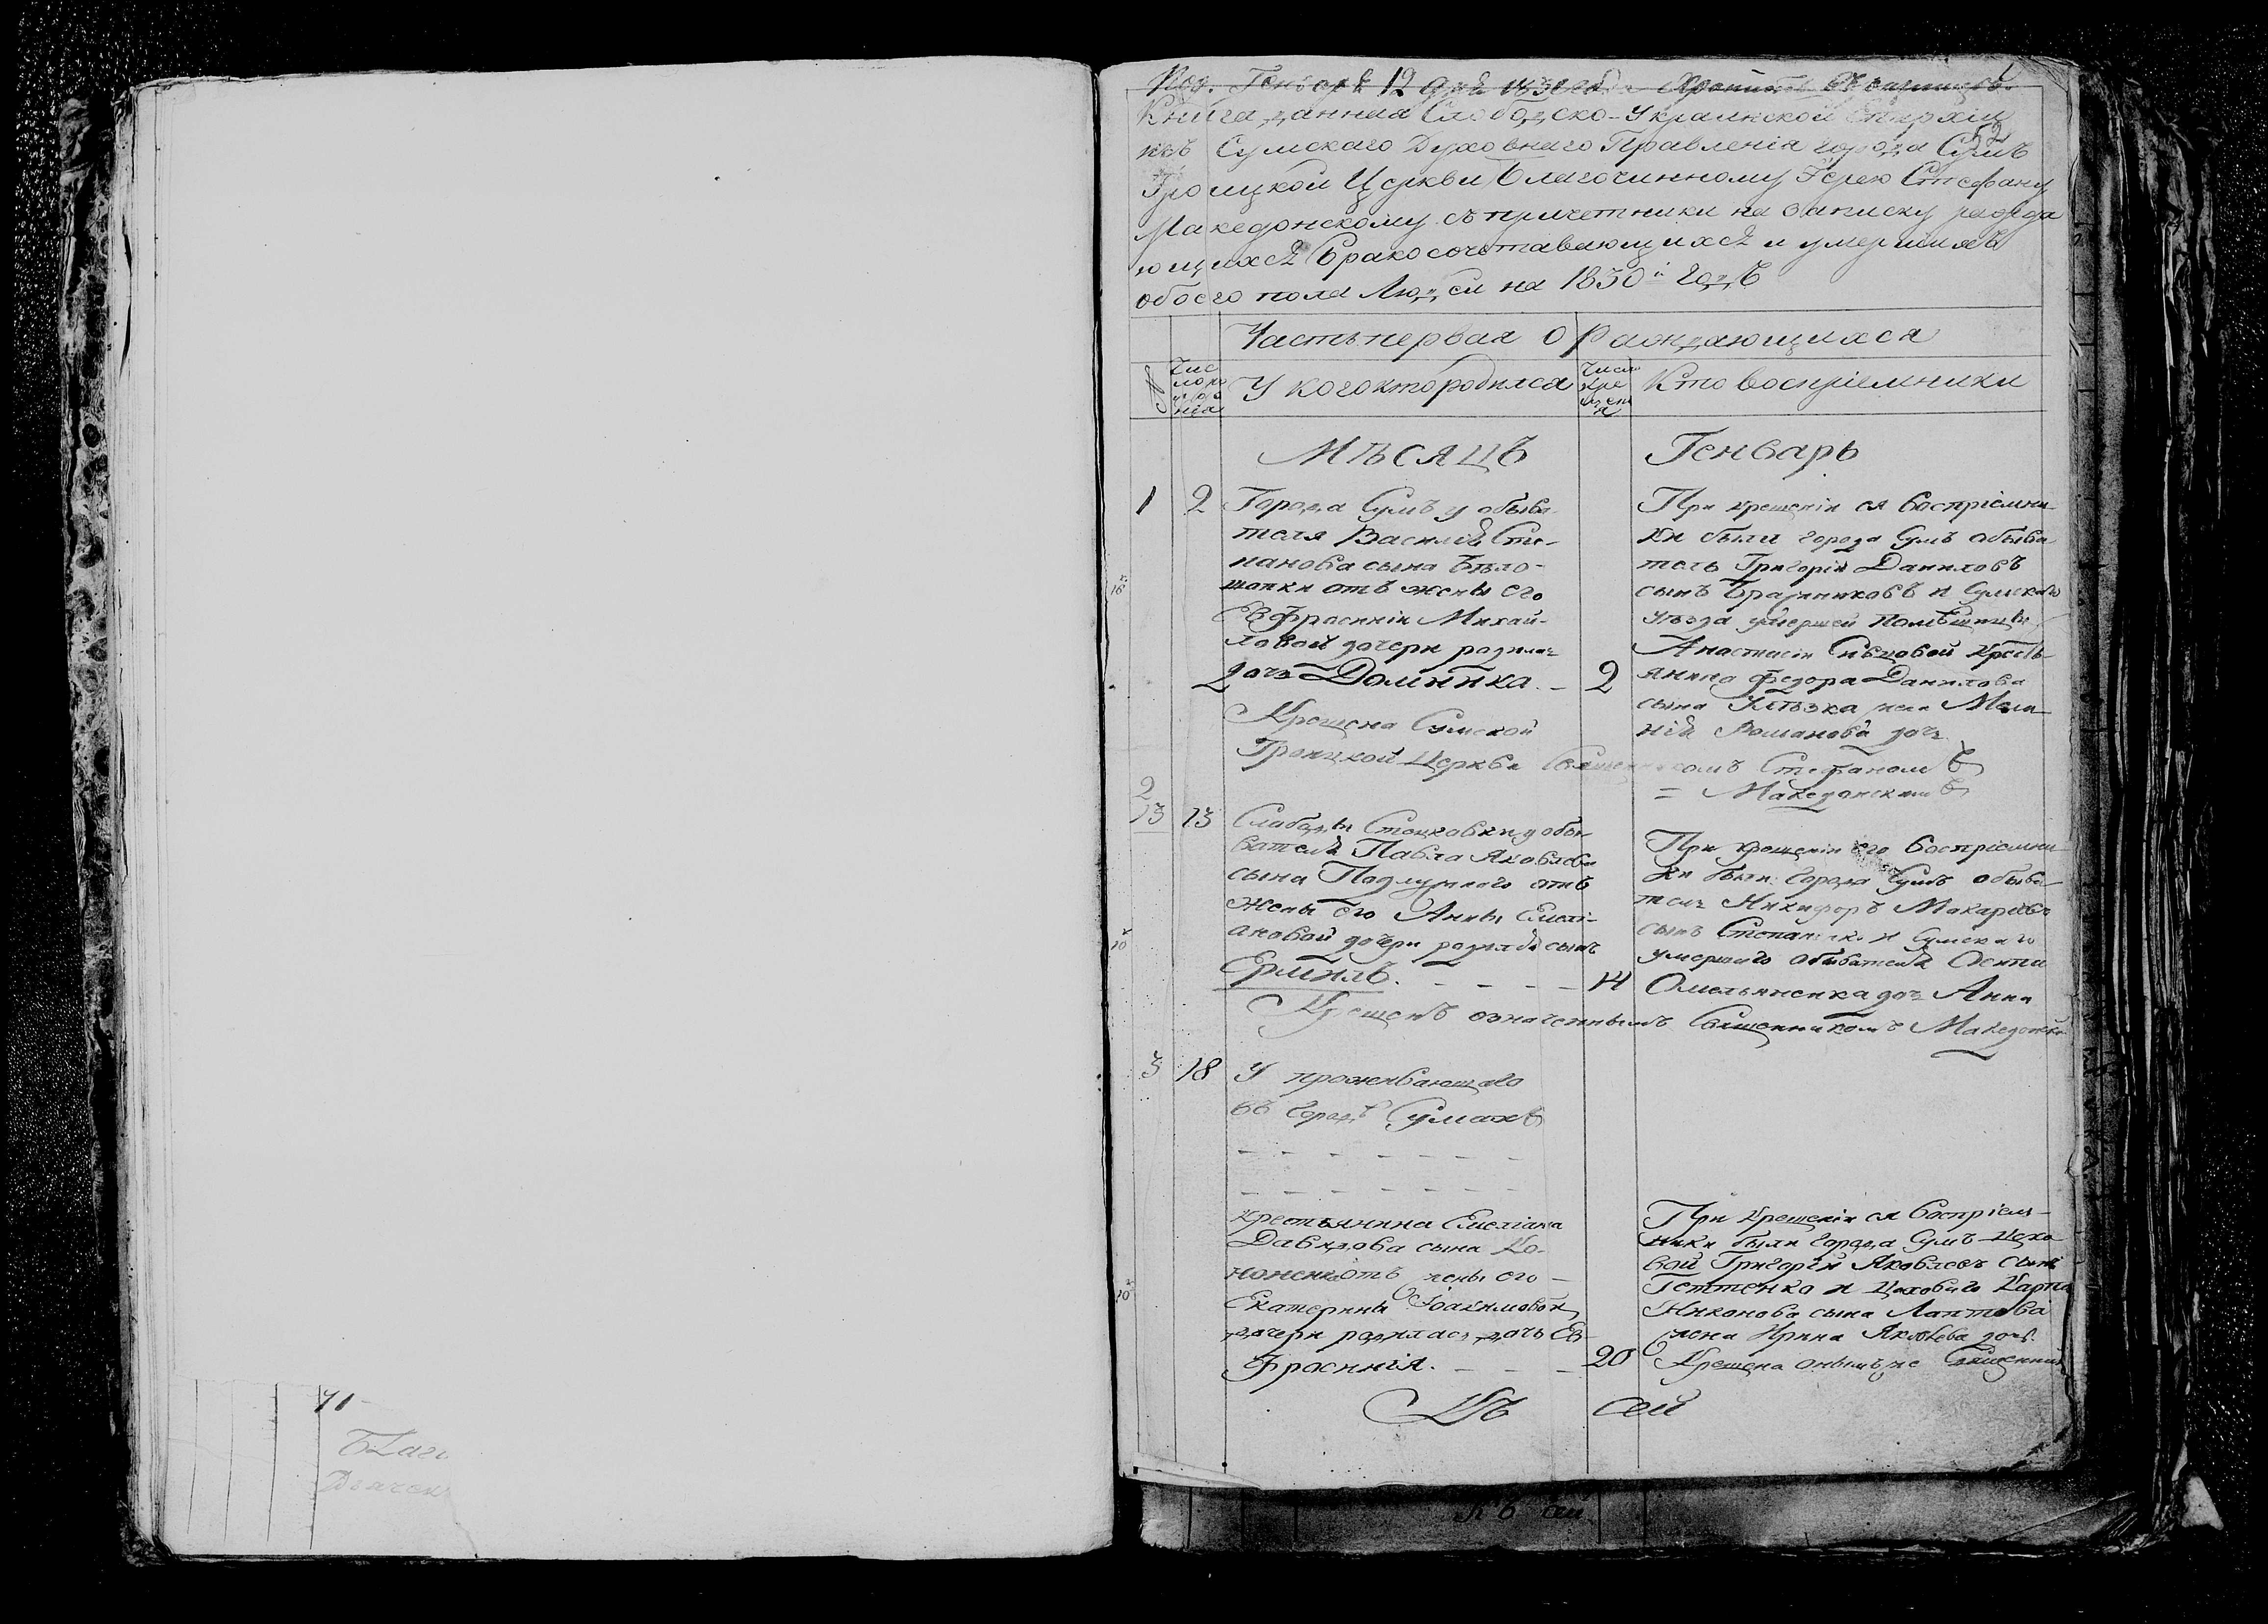 Генваря 12 дня
Книга данная Слободско-Украинской Епархіи
изъ Сумскаго Духовнаго Правленія города Сумъ
52
Троицкой Церкви Благочинному Іерею Стефану
Македонскому съ причетники на записку ражда
ющихся бракосочетавающихся и умершихъ
обоего пола людей на 1830й годъ
Часть первая о Раждающихся
№
Чис
ло ро
нія
У кого кто родился
Число
кре
щен
Кто воспріемники
Мѣсяцъ
Генварь
1
2
Города Сумъ у обыва
теля Василія Сте-
панова сына Бѣло-
шапки отъ жены его
Евфросиніи Михай-
ловой дочери родилась
дочь Домникa. –
2
Крещена Сумской
Троицкой Церкви Священникомъ Стефаномъ
= Македонскимъ
При крещеніи ея воспріемни-
ки были города Сумъ обыва
тель Григорій Даниловъ
сынъ и Сумскаго
уѣзда умершей помѣщицы
Анастасіи крестья
янина Федора Данилова
сына жена Мела
нія Романова дочь
2
13
13
Слободы Стецковки у обы
вателя Павла Яковлева
сына отъ
жены его Анны Емелі-
ановой дочери родился сынъ
Ермилъ. - - - -
14
Крещенъ означеннымъ Священникомъ Македонск
При крещеніи его воспріемни
ки были города Сумъ обыва
тель Никифоръ Макаріевъ
сынъ Степаненко и Сумскаго
умершаго обывателя Осипа
Омельяненка дочь Анна
3
18
У проживающаго
въ городѣ Сумахъ
крестьянина Емеліана
Давидова сына Ко-
ноненка отъ жены его –
Екатерины Іоакимовой
дочери родилась дочь Ев-
фросинія. - - -
20
При крещеніи ея воспріем-
ники были города Сумъ цехо
вой Григорій Яковлевъ сынъ
и цеховаго Карпа
Никонова сына Лаптева
жена Ирина Яковлева дочь.
Крещена онымъ же Священник
Къ
сей
къ сей
41
Благ
Дьячек